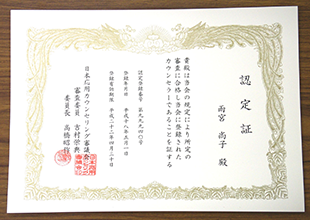 認定証
雨宮 尚子 殿
貴殿は当会の規定により所定の
審査に合格し当会に登録された
カウンセラーであることを証する
認定登録番号 第九九九四〇号
登録年月日 平成十八年五月一日
登録有効期限 平成二十二年四月三十日
日本応用カウンセリング審議会
審査委員 吉村佾典
委員長 高橋昭